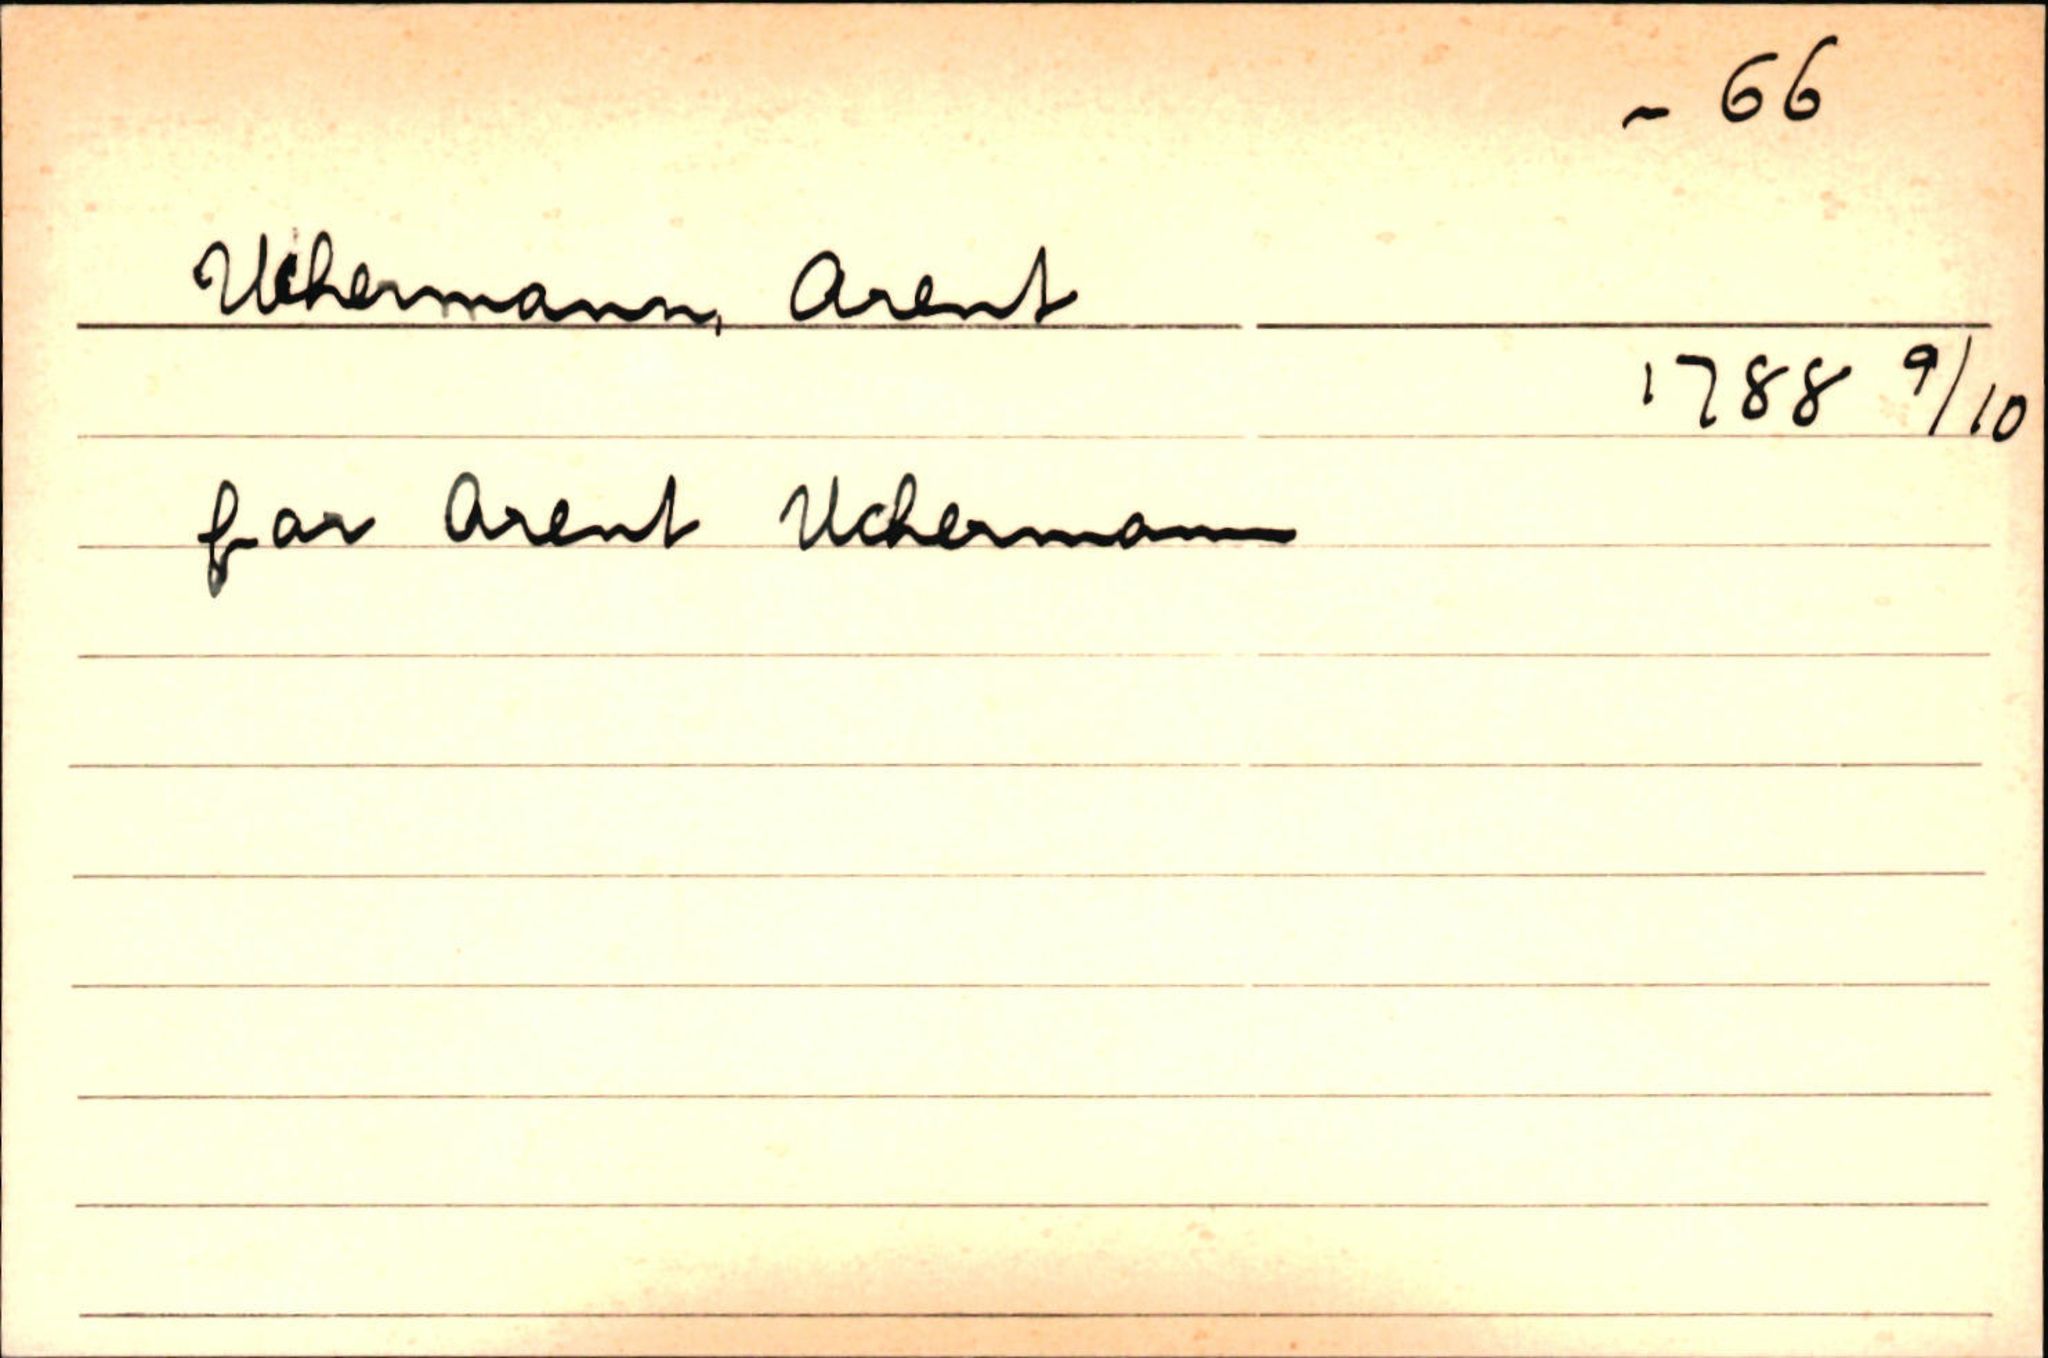 ~ 66
Uchermann, Arent
1788 9/10
far Arent Uchermann